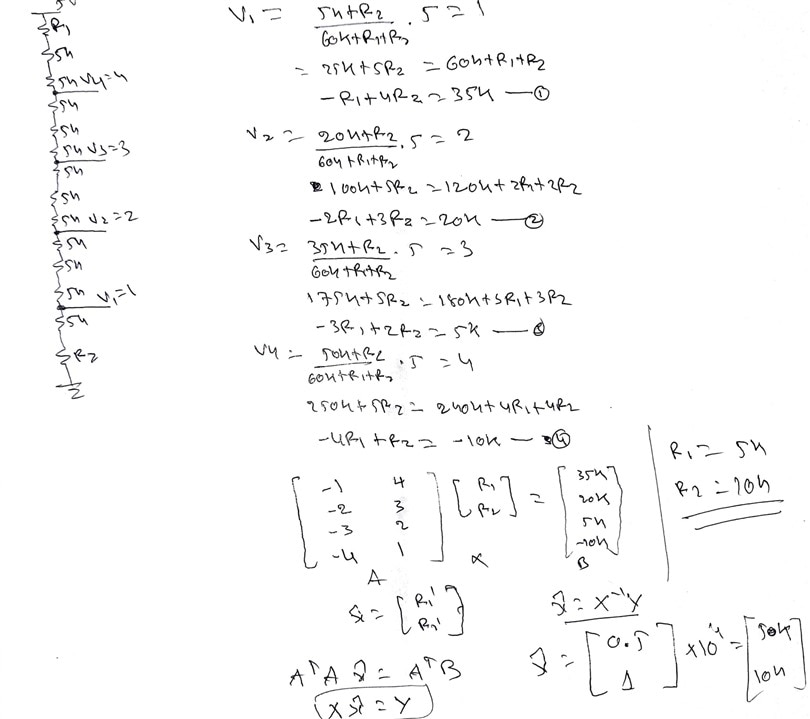 R1
5k
5k V4=4
5k
5k
5k V3=3
5k
5k
5k V2=2
5k
5k
5k V1=1
5k
R2
V1 = (5k+R2)/(60k+R1+R2) . 5 = 1
= 25k+5R2 = 60k+R1+R2
-R1+4R2 = 35k — ①
V2 = (20k+R2)/(60k+R1+R2) . 5 = 2
100k+5R2 = 120k+2R1+2R2
-2R1+3R2 = 20k — ②
V3 = (35k+R2)/(60k+R1+R2) . 5 = 3
175k+5R2 = 180k+3R1+3R2
-3R1+2R2 = 5k — ③
V4 = (50k+R2)/(60k+R1+R2) . 5 = 4
250k+5R2 = 240k+4R1+4R2
-4R1+R2 = -10k — ④
R1 = 5k
R2 = 10k
[-1 4
-2 3
-3 2
-4 1] [R1
R2] = [35k
20k
5k
-10k]
A x B
x̂ = [R1'
R2']
AᵀA x̂ = AᵀB
Xx̂ = Y
x̂ = X⁻¹Y
x̂ = [0.5
1] ×10⁴ = [50k
10k]